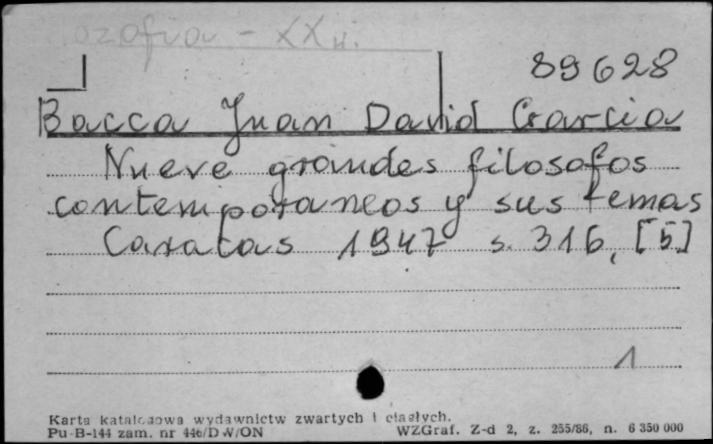 ozofia - XX w.
89628
Bacca Juan David Garcia
Nueve grandes filosofos
contemporaneos y sus temas
Caracas 1947 s. 316, [5]
1
Karta katalogowa wydawnictw zwartych i ciągłych.
Pu-B-144 zam. nr 446/D W/ON WZGraf. Z-d 2, z. 255/86, n. 6 350 000